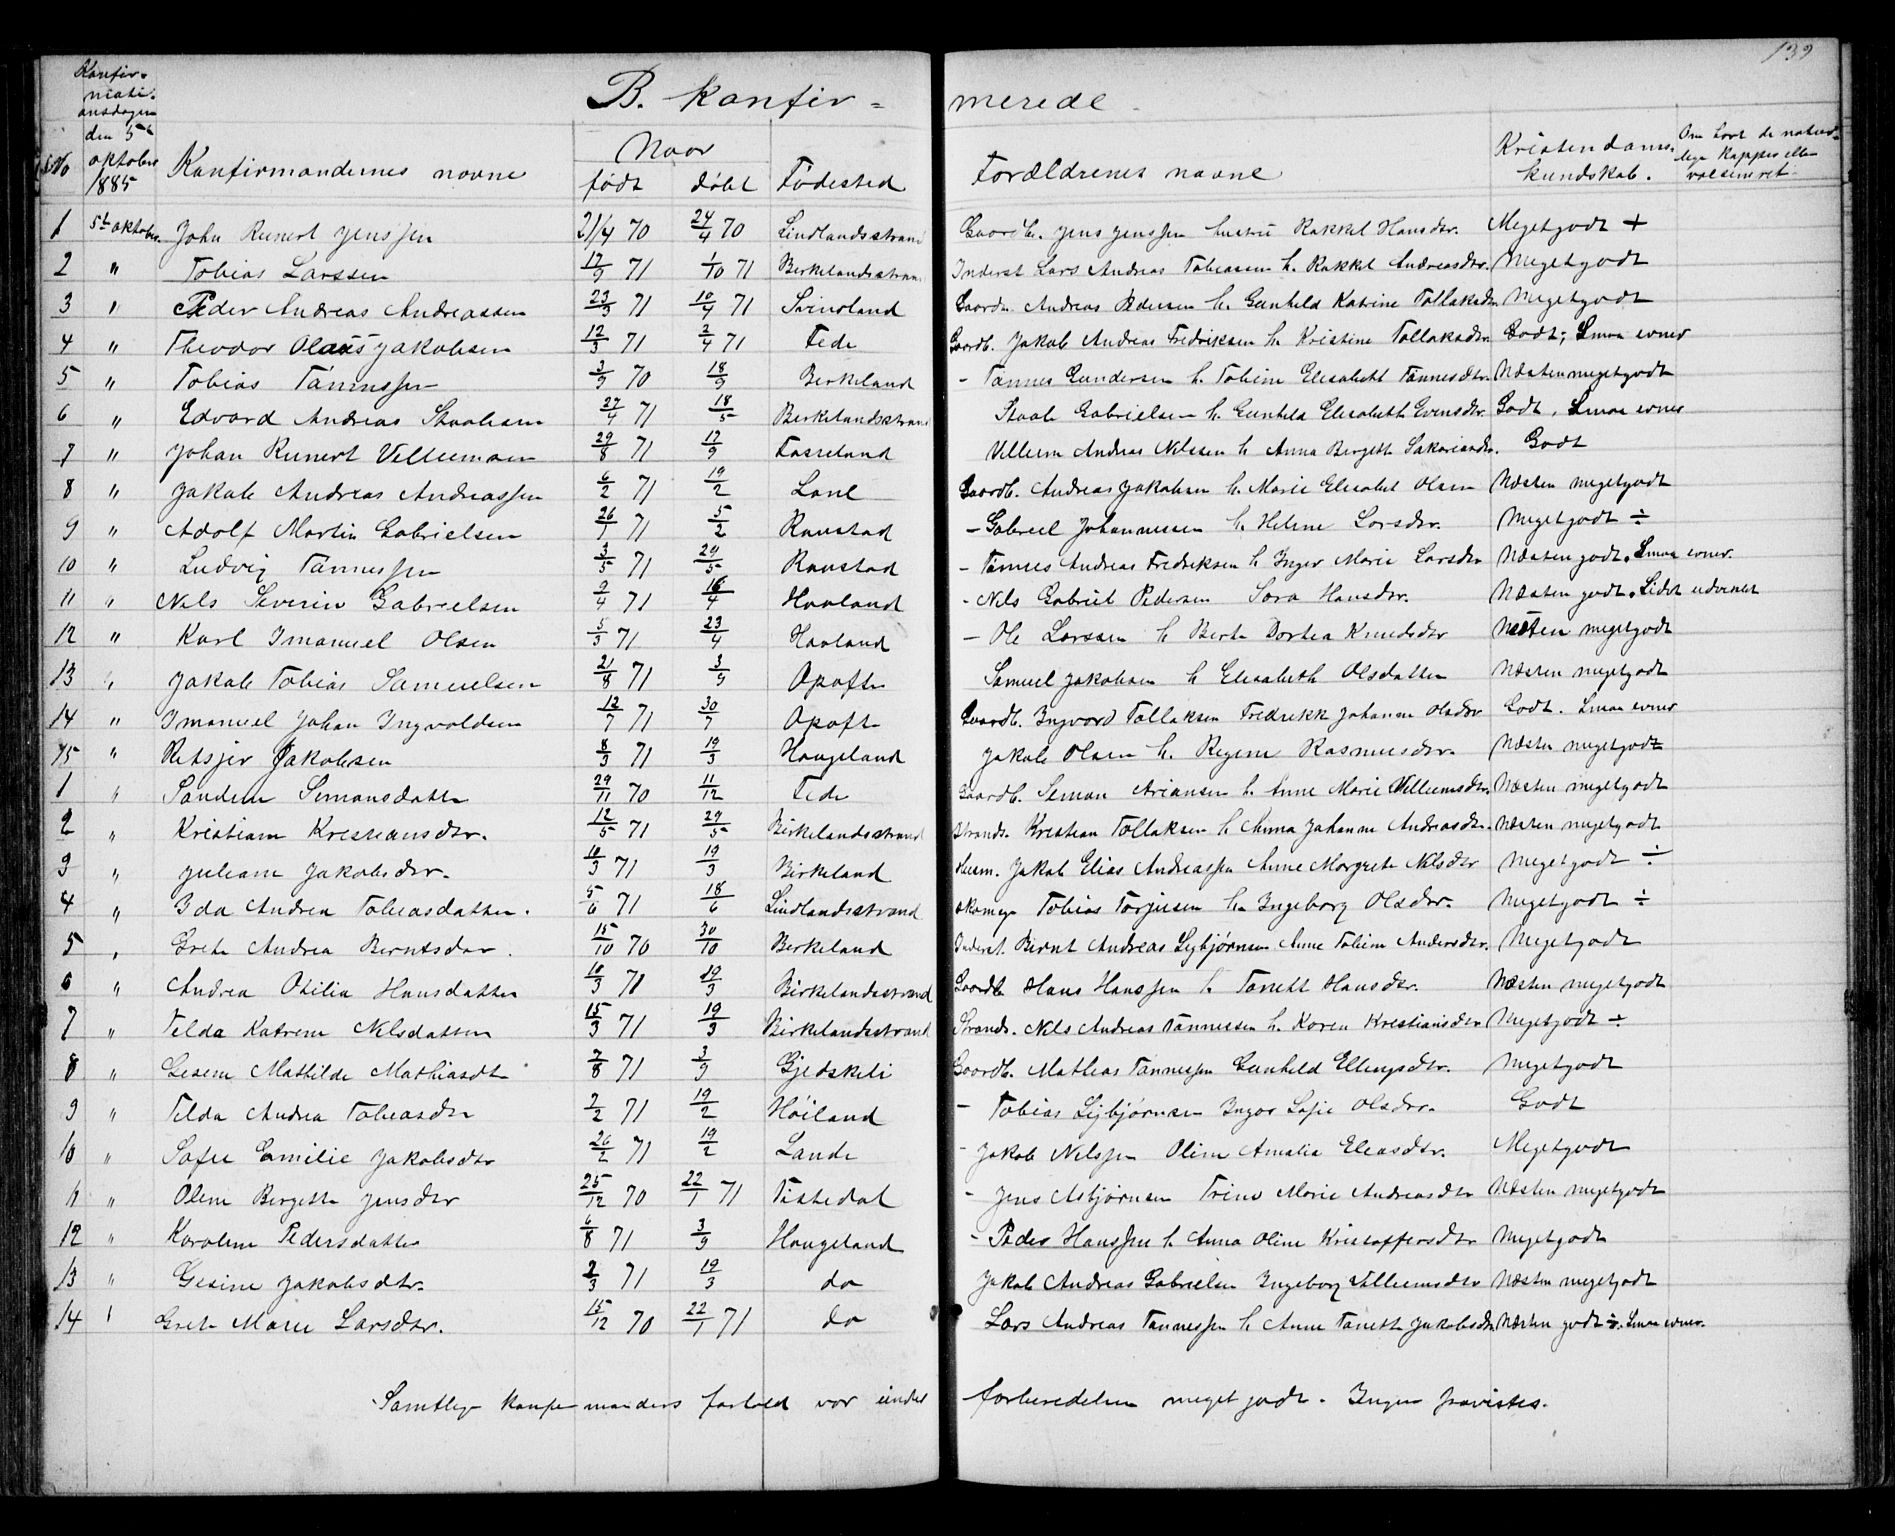 139
B. Konfirmerede
No Konfirmationsdagen den 5te oktober 1885 Konfirmandernes navne Naar født døbt Fødested Forældrenes navne Kristendomskundskab. Om havt de naturlige Kopper eller vaccineret.
1 5te oktober John Reinert Jenssen 21/4 70 24/4 70 Lindlandsstrand Gaardb. Jens Jenssen hustru Rakkel Hansdtr. Megetgodt +
2 " Tobias Larssen 17/9 71 1/10 71 Birkelandsstrand Inderst Lars Andreas Tobiassen h. Rakkel Andreasdtr. Megetgodt
3 " Peder Andreas Andreassen 23/3 71 10/4 71 Svindland Gaardb. Andreas Pedersen h. Gunhild Katrine Tollaksdtr Megetgodt
4 " Theodor Olaus Jakobsen 12/3 71 2/4 71 Fede Gaardb. Jakob Andreas Fredriksen h. Kristine Tollaksdtr. Godt; Smaa evner
5 " Tobias Tønnessen 3/9 70 18/9 Birkeland - Tønnes Gundersen h. Tobine Elisabeth Tønnesdtr. Næsten megetgodt
6 " Edvard Andreas Staalesen 27/4 71 18/5 Birkelandsstrand Staale Gabrielsen h. Gunhild Elisabeth Evensdtr. Godt. Smaa evner
7 " Johan Reinert Villumsen 29/8 71 17/9 Fosseland Villum Andreas Nilssen h Anna Bergitte Sakariasdtr. Godt
8 " Jakob Andreas Andreassen 6/2 71 19/2 Lone Gaardb. Andreas Jakobsen h. Marie Elisabet Olsen Næsten megetgodt
9 " Adolf Martin Gabrielsen 26/1 71 5/2 Ranstad - Gabriel Johannessen h. Helene Larsdtr. Megetgodt ÷
10 " Ludvig Tønnessen 3/5 71 29/5 Ranstad - Tønnes Andreas Fredriksen h Inger Marie Larsdtr Næsten godt. Smaa evner
11 " Nils Severin Gabrielsen 9/4 71 16/4 Haaland - Nils Gabriel Pedersen Sara Hansdtr. Næsten godt. Lidet udviklet
12 " Karl Imanuel Olsen 5/3 71 23/4 Haaland - Ole Larssen h Berte Dortea Knudsdtr Næsten megetgodt
13 " Jakob Tobias Samuelsen 21/8 71 3/9 Opofte Samuel Jakobsen h Elisabeth Olsdatter Næsten megetgodt
14 " Imanuel Johan Ingvoldsen 12/7 71 30/7 Opofte Gaardb. Ingvold Tollaksen Fredrikke Johanne Olsdtr Godt. Smaa evner
15 " Reisjer Jakobsen 8/3 71 19/3 Haugeland Jakob Olsen h. Regine Rasmusdtr. Næsten megetgodt
1 " Sandine Simonsdatter 29/11 70 11/12 Fede Gaardb. Simon Ariansen h. Anne Marie Villumsdtr. Næsten megetgodt
2 " Kristiane Kristiansdtr. 12/5 71 29/5 Birkelandsstrand Strands. Kristian Tollaksen h. Anna Johanne Andreasdtr. Næsten megetgodt
3 " Juliane Jakobsdtr. 10/3 71 19/3 Birkeland Husm. Jakob Elias Andreassen Anne Margrete Nilsdtr Megetgodt ÷
4 " Ida Andrea Tobiasdatter. 5/6 71 18/6 Lindlandsstrand Skomager Tobias Torjusen h. Ingeborg Olsdtr. Megetgodt ÷
5 " Grete Andrea Berntsdtr. 15/10 70 30/10 Birkeland Inderst. Bernt Andreas Sigbjørnsen Anne Tobine Andersdtr. Megetgodt
6 " Andrea Otilia Hansdatter 10/3 71 19/3 Birkelandsstrand Gaardb Hans Hanssen h. Tonette Hansdtr. Næsten megetgodt
7 " Tilda Katrine Nilsdatter 15/3 71 19/3 Birkelandsstrand Strands. Nils Andreas Tønnessen h. Karen Kristiansdtr Megetgodt ÷
8 " Gesine Mathilde Mathiasdtr 7/8 71 3/9 Gjedskeli Gaardb. Mathias Tønnessen Gunhild Ellingsdtr. Megetgodt
9 " Tilda Andrea Tobiasdtr 2/2 71 19/2 Høiland - Tobias Sigbjørnsen Inger Sofie Olsdtr. Godt
10 " Sofie Emilie Jakobsdtr 26/2 71 19/2 Lande - Jakob Nilssen Oline Amalia Eliasdtr. Megetgodt
11 " Oline Bergitte Jensdtr 25/12 70 22/1 71 Tistedal - Jens Asbjørnsen Trine Marie Andreasdtr Næsten megetgodt
12 " Karoline Pedersdatter 6/8 71 3/9 Haugeland - Peder Hanssen h Anna Oline Kristoffersdtr Megetgodt
13 " Gesine Jakobsdtr. 2/3 71 19/3 do Jakob Andreas Gabrielsen Ingeborg Villumsdtr Næsten megetgodt
14 " Grete Marie Larsdtr. 15/12 70 22/1 71 do Lars Andreas Tønnessen h Anne Tonette Jakobsdtr Næsten godt ÷. Smaa evner.
Samtlige konfirmanders forhold var under forberedelsen meget godt. Ingen fravistes.